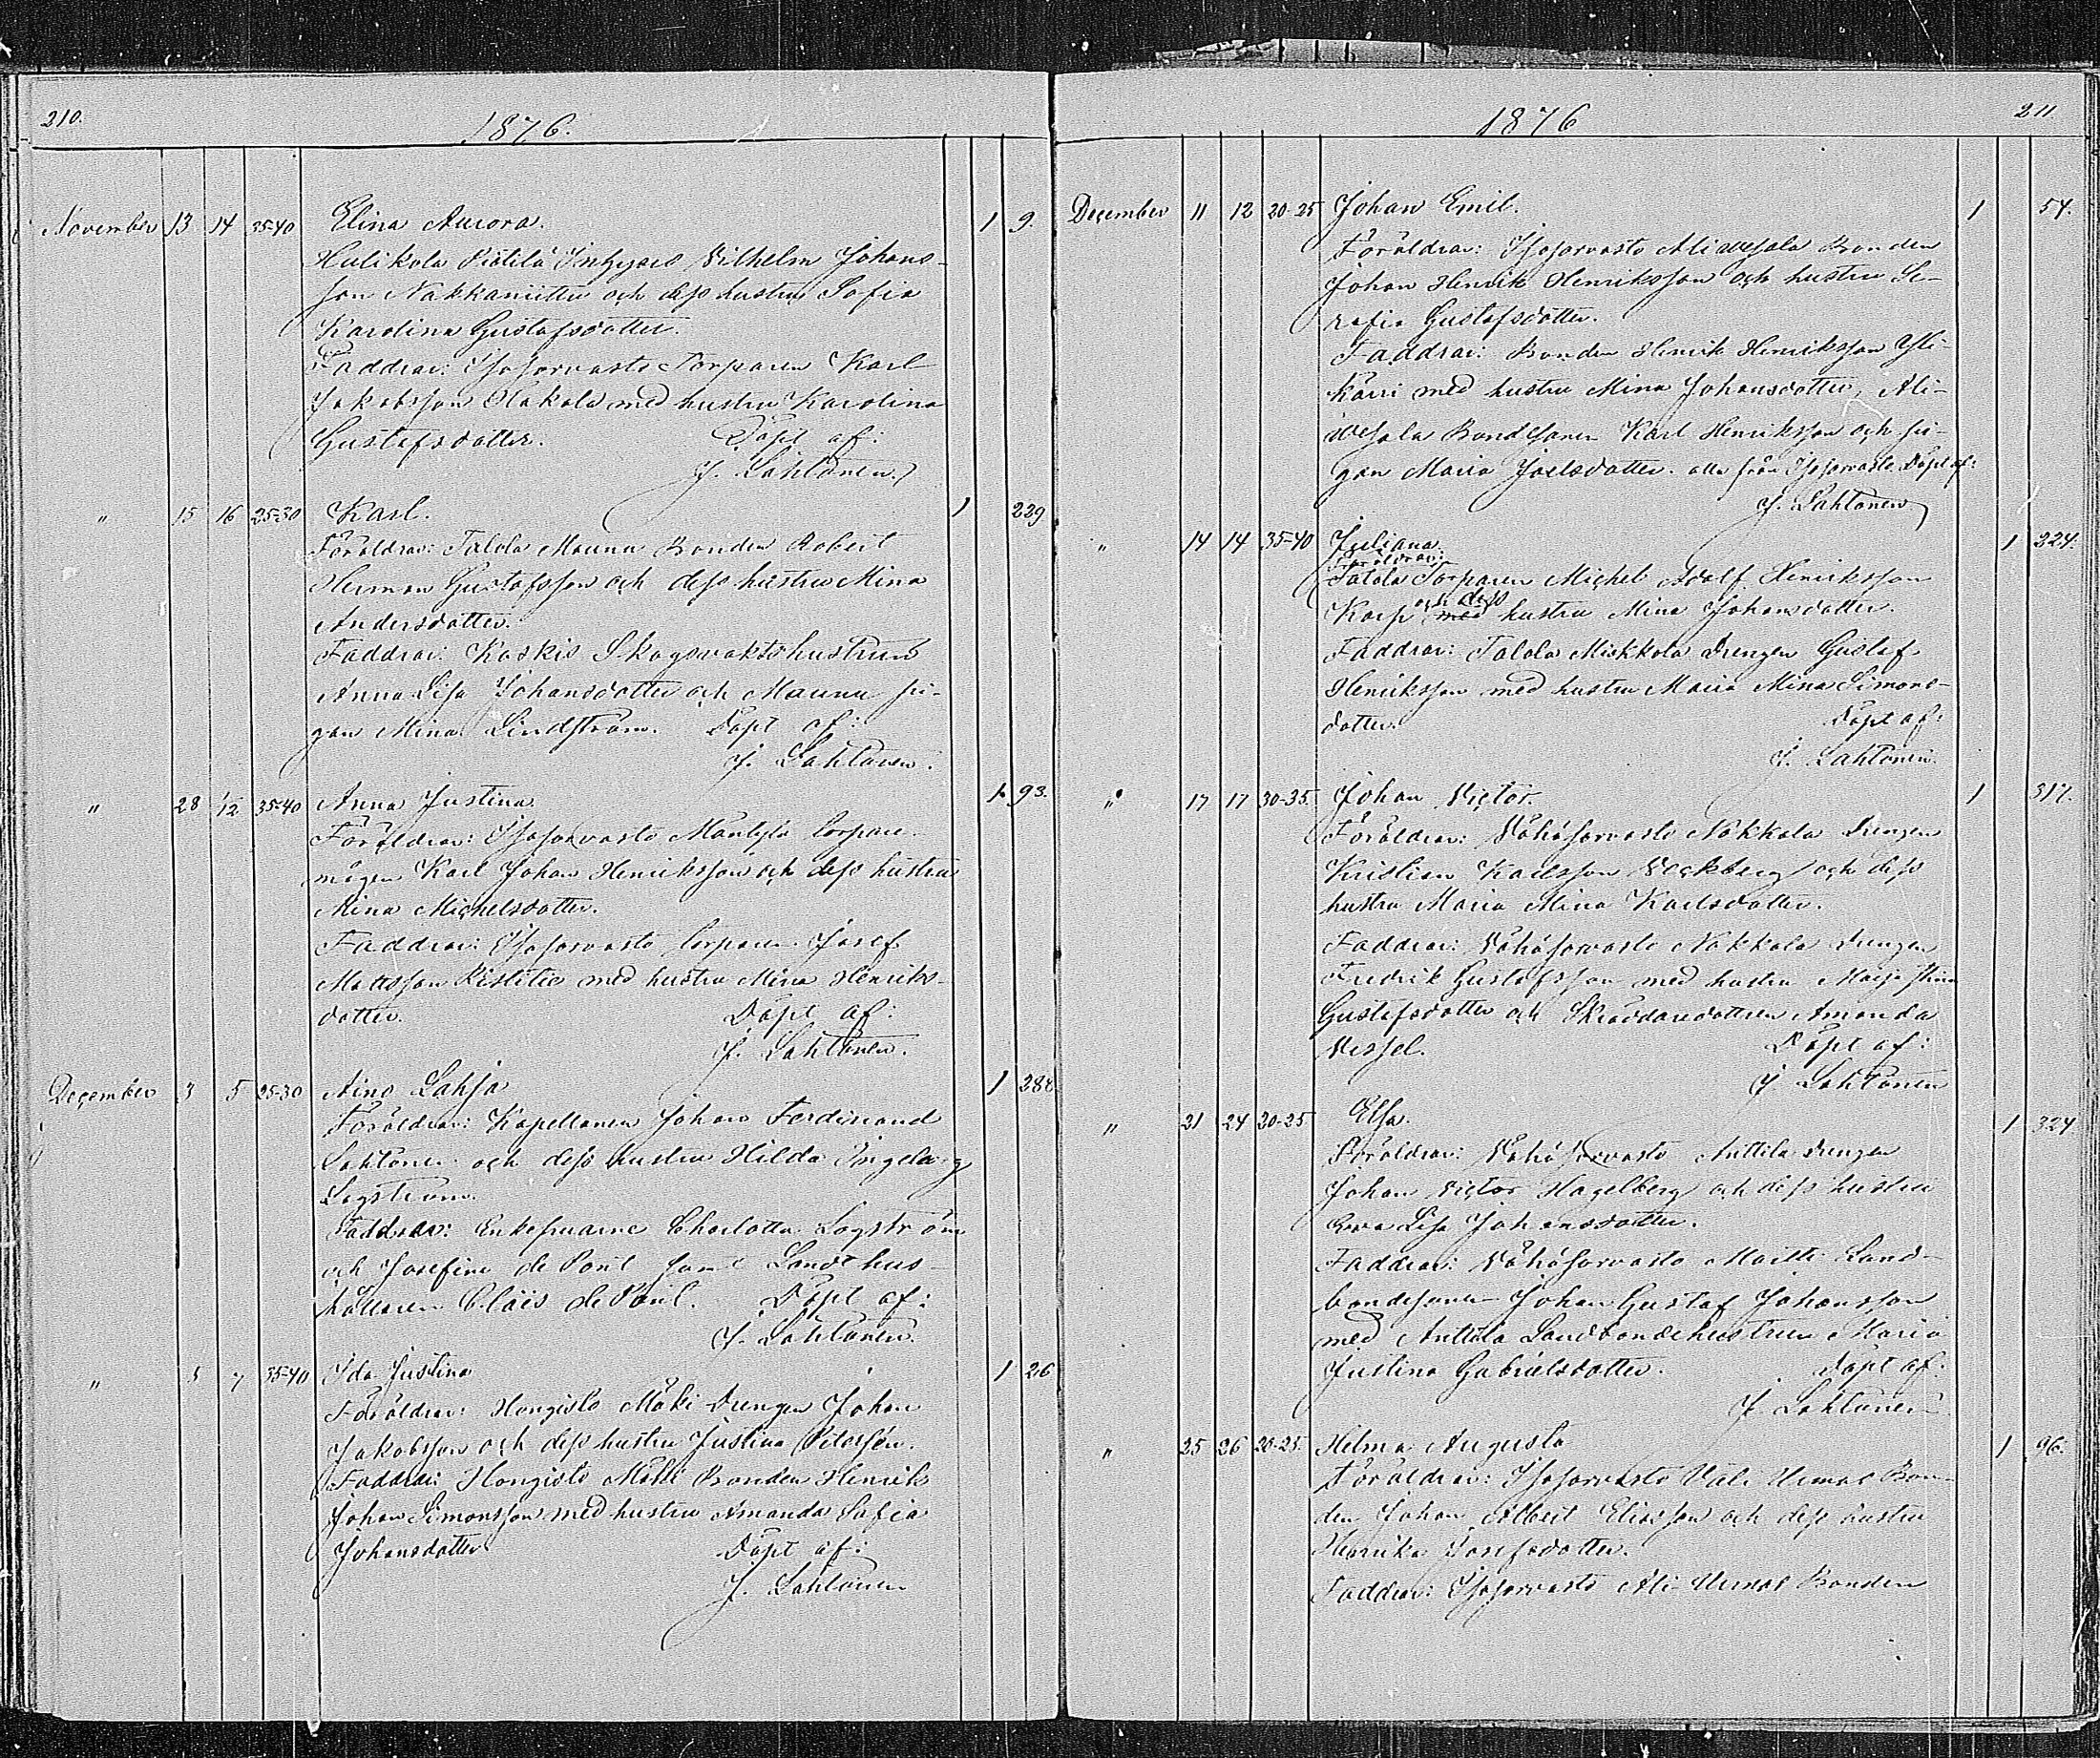 210.
1876.
November 13 14 35-40 Elina Aurora. 1 9.
Hulikola Pietilä Inhyses Vilhelm Johans-
son Nakkaniittu och dess hustru Sofia
Karolina Gustafsdotter.
Faddrar: Isosorvasto Torparen Karl
Jakobsson Olakala med hustru Karolina
Gustafsdotter. Döpt af:
J. Lahtonen.
" 15 16 25-30 Karl. 1 229
Föräldrar: Talola Maunu Bonden Robert
Herman Gustafsson och dess hustru Mina
Andersdotter.
Faddrar: Koskis Skogsvaktshustrun
Anna Lisa Johansdotter och Maunu pi-
gan Mina Lindström. Döpt af:
J. Lahtonen.
" 28 1/12 35-40 Anna Justina 1 93.
Föräldrar: Isosorvasto Mäntylä torpare-
mågen Karl Johan Henriksson och dess hustru
Mina Michelsdotter.
Faddrar: Isosorvasto torparen Josef
Mattsson Ristitie med hustru Mina Henriks-
dotter. Döpt af:
J. Lahtonen.
December 3 5 25-30 Aino Lahja 1 288.
Föräldrar: Kapellanen Johan Ferdinand
Lahtonen och dess hustru Hilda Ingeborg
Logström.
Faddrar: Enkefruarne Charlotta Logström
och Josefine de Pont samt Landthus-
hållaren Cläis de Pont. Döpt af:
J. Lahtonen.
" 5 7 35-40 Ida Justina 1 26
Föräldrar: Hongisto Mäki Drengen Johan
Jakobsson och dess hustru Justina Petersén.
Faddrar: Hongisto Matti Bonden Henrik
Johan Simonsson med hustru Amanda Sofia
Johansdotter Döpt af:
J. Lahtonen
1876
211
December 11 12 20-25 Johan Emil. 1 54.
Föräldrar: Isosorvasto Aliwesala Bonden
Johan Henrik Henriksson och hustru Se-
rafia Gustafsdotter.
Faddrar: Bonden Henrik Henriksson Yli-
kärri med hustru Mina Johansdotter, Ali-
wesala Bondesonen Karl Henriksson och pi-
gan Maria Joelsdotter. alla från Isosorvasto. Döpt af:
J. Lahtonen
" 14 14 35-40 Juliana. 1 224.
Föräldrar:
Talola Torparen Michel Adolf Henriksson
och dess
Korpi med hustru Mina Johansdotter.
Faddrar: Talola Mikkola Drengen Gustaf
Henriksson med hustru Maria Mina Simons-
dotter. Döpt af:
J. Lahtonen.
" 17 17 30-35. Johan Victor. 1 317.
Föräldrar: Vähäsorvasto Nokkala Drengen
Kristian Karlsson Veckberg och dess
hustru Maria Mina Karlsdotter.
Faddrar: Vähäsorvasto Nokkala Drengen
Fredrik Gustafsson med hustru Maja Stina
Gustafsdotter och Skräddaredottren Amanda
Vessel. Döpt af:
J. Lahtonen
" 21 24 20-25 Elsa. 1 324
Föräldrar: Vähäsorvasto Anttila drengen
Johan Victor Hagelberg och dess hustru
Eva Lisa Johansdotter.
Faddrar: Vähäsorvasto Mattti Land-
bondesonen Johan Gustaf Johansson
med Anttila Landbondehustrun Maria
Justina Gabrielsdotter. Döpt af:
J. Lahtonen
" 25 26 20-25. Hilma Augusta 1 96.
Föräldrar: Isosorvasto Väli Uemas Bon-
den Johan Albert Eliasson och dess hustru
Henrika Josefsdotter.
Faddrar: Isosorvasto Ali Uemas Bonden